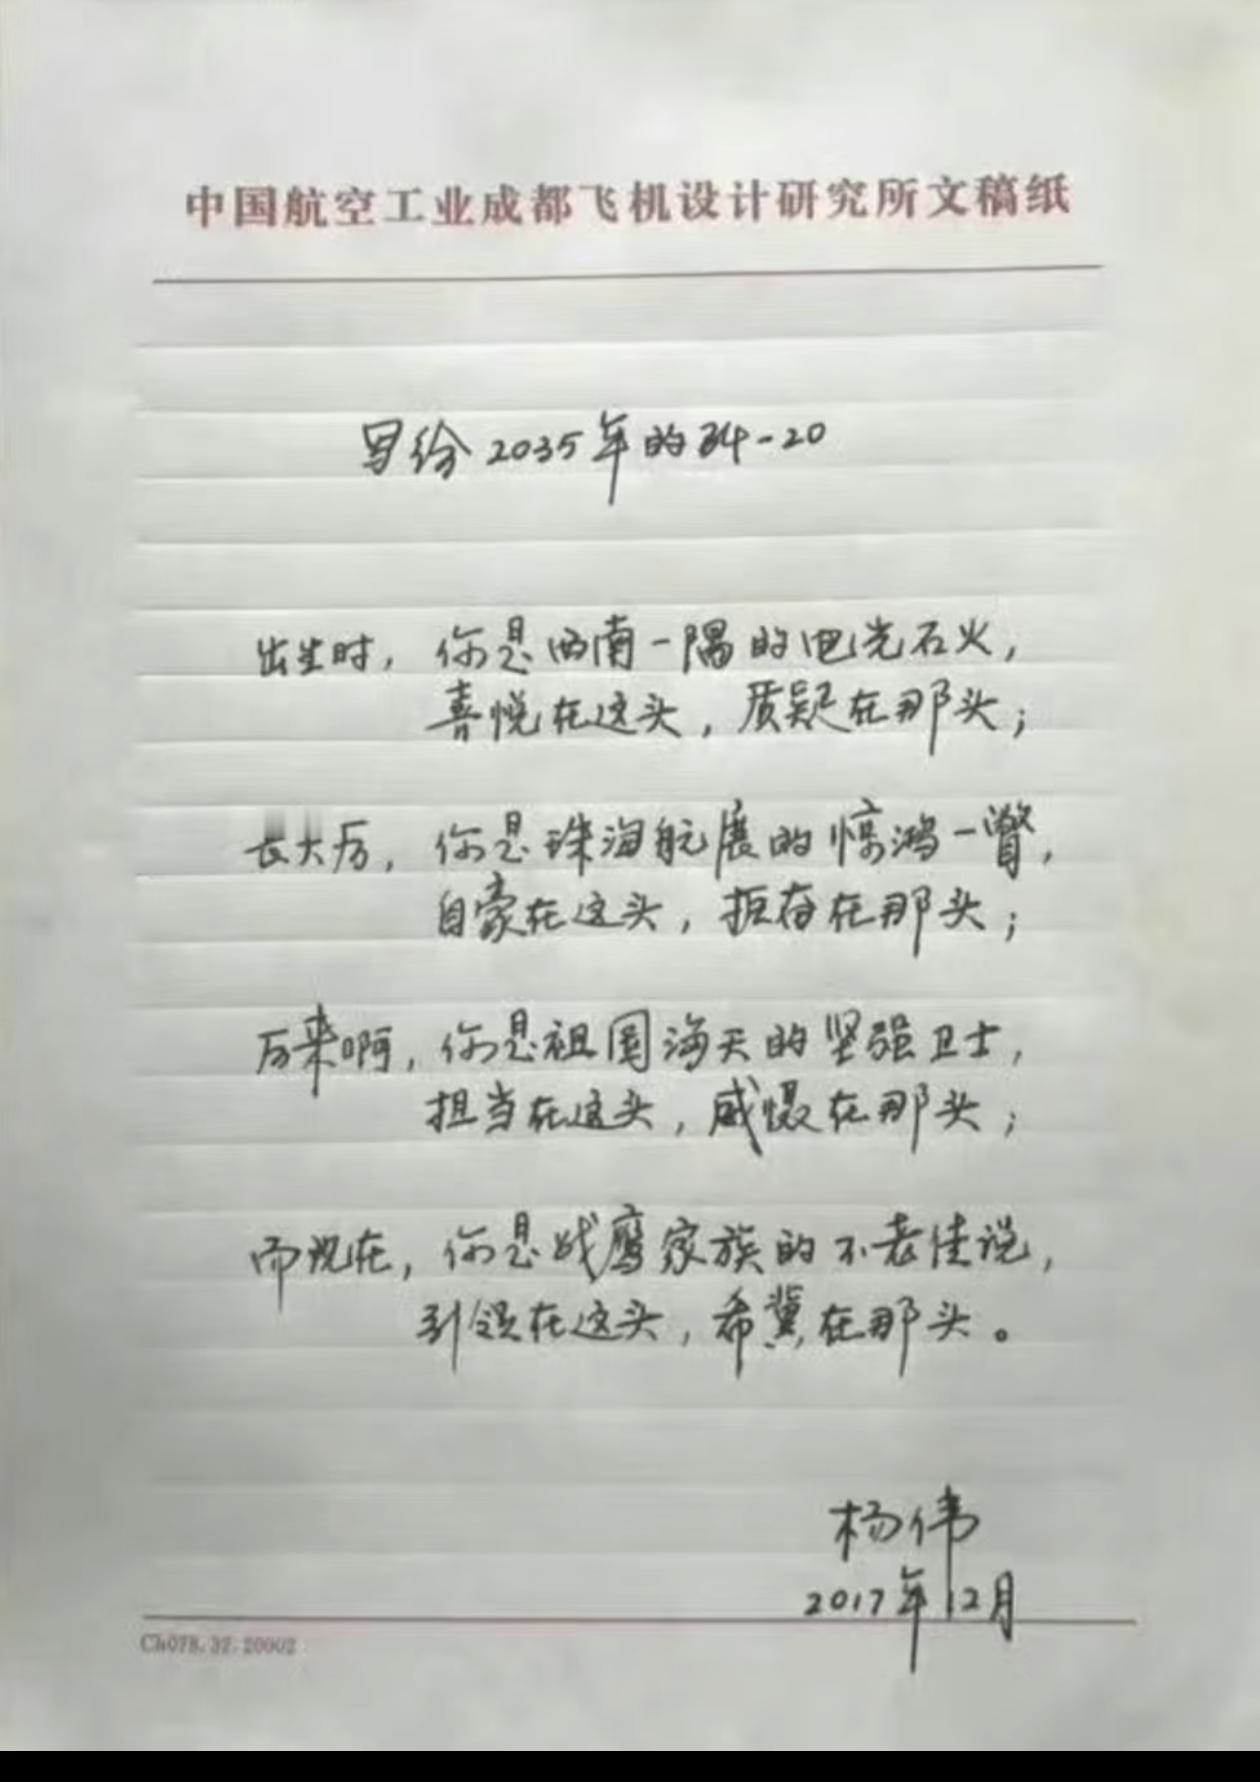 中国航空工业成都飞机设计研究所文稿纸
写给2035年的歼-20
出生时，你是西南一隅的电光石火，
喜悦在这头，质疑在那头；
长大后，你是珠海航展的惊鸿一瞥，
自豪在这头，振奋在那头；
后来啊，你是祖国海天的坚强卫士，
担当在这头，威慑在那头；
而现在，你是战鹰家族的不老传说，
引领在这头，希冀在那头。
杨伟
2017年12月
Ch078.37.20002